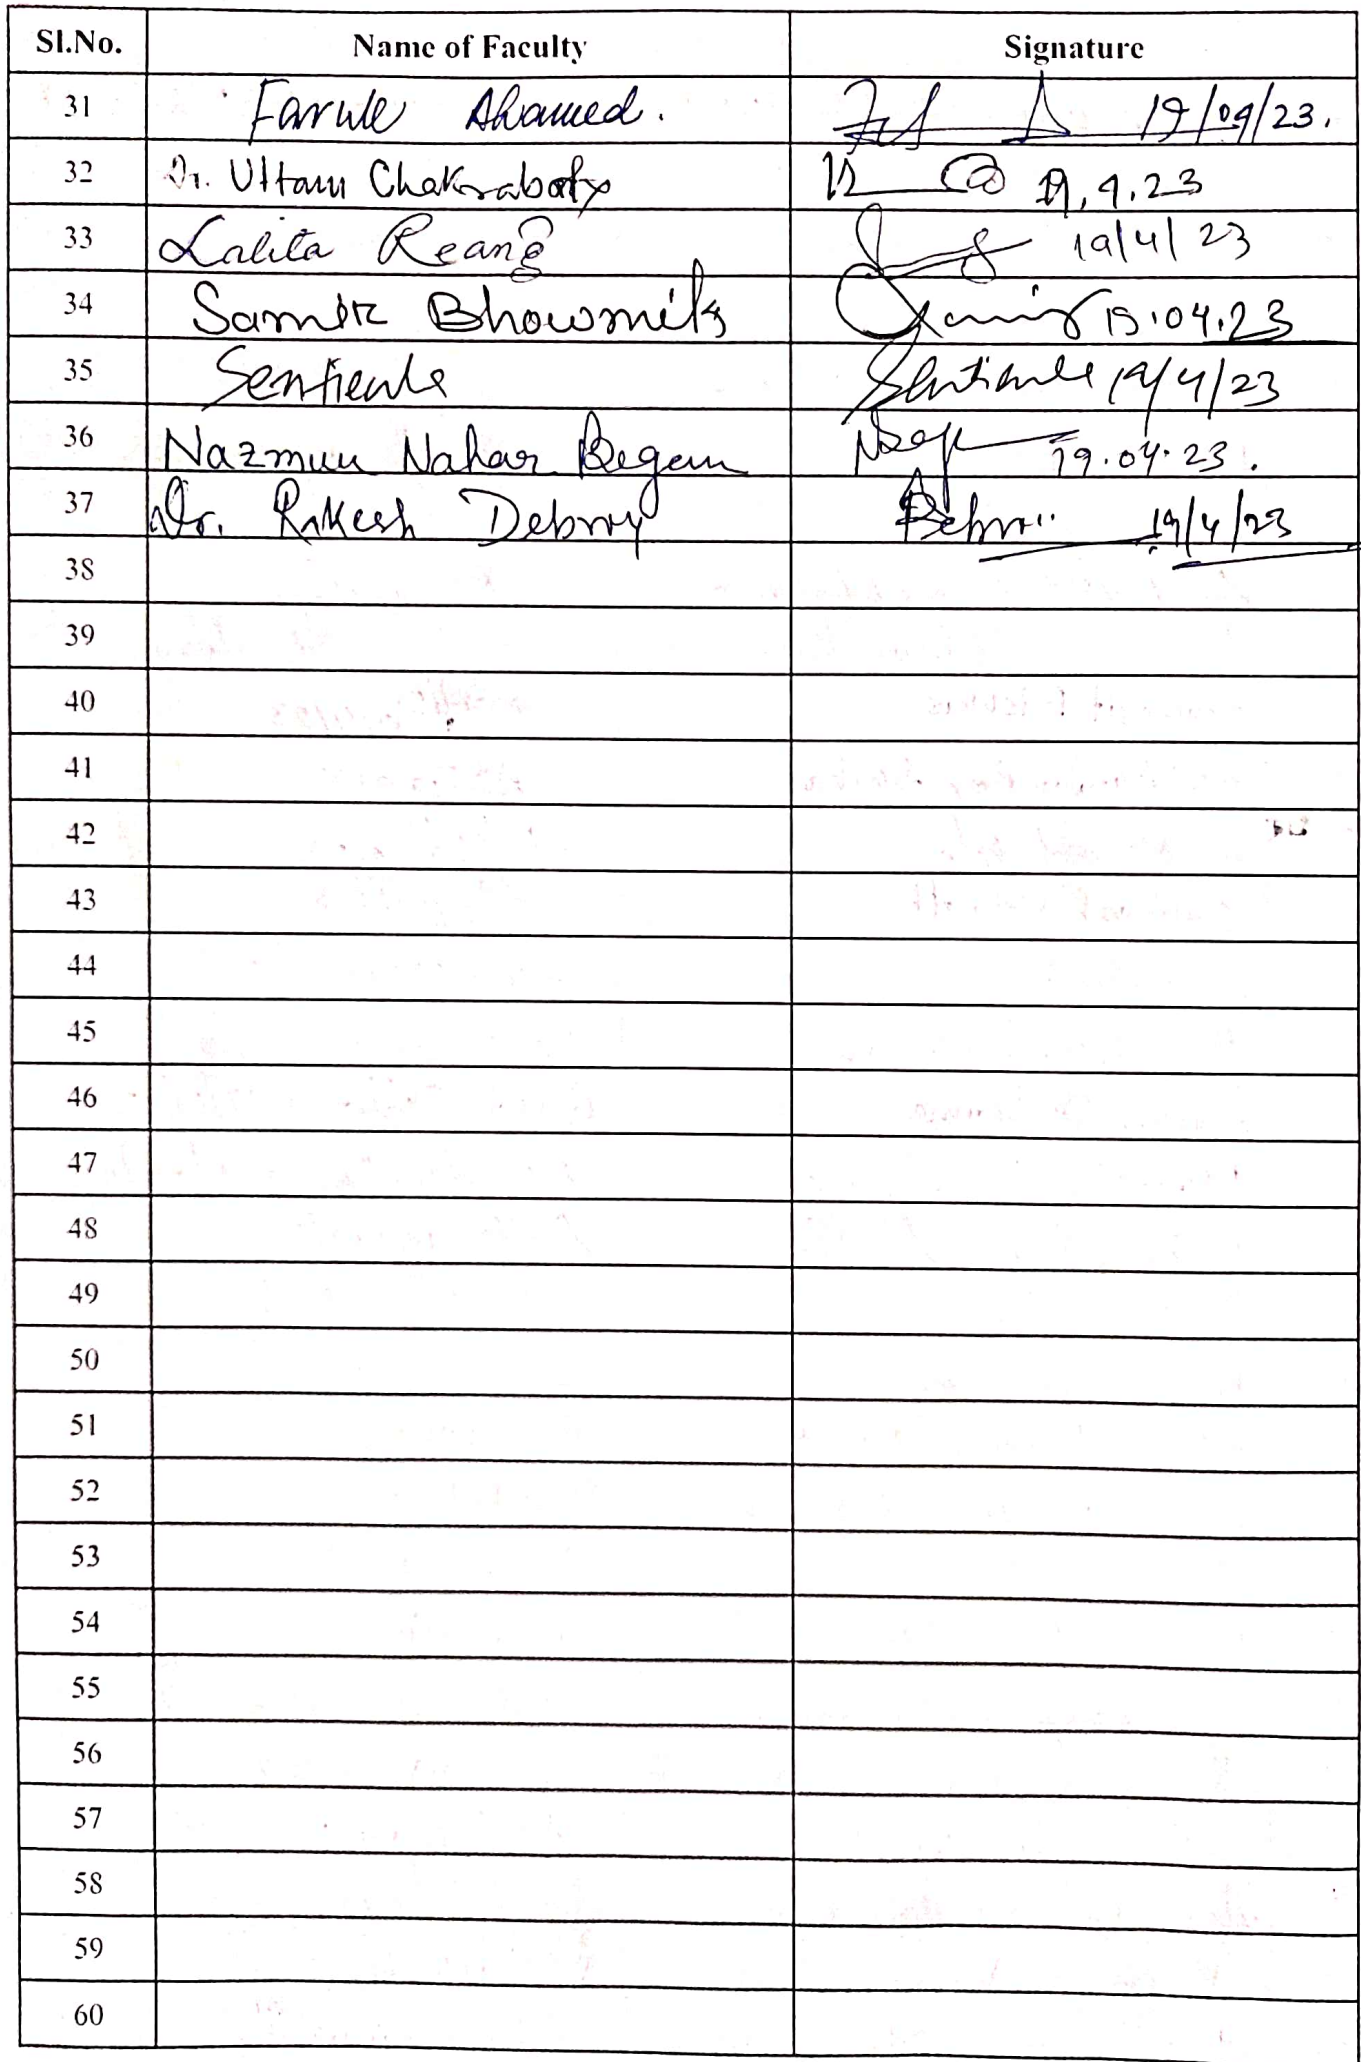 Sl.No. Name of Faculty Signature
31 Faruk Ahamed. 19/09/23.
32 Dr. Uttam Chakraborty 19.4.23
33 Lalita Reang 19/4/23
34 Samir Bhowmik 19.04.23
35 Sentienla Sentienla 19/4/23
36 Nazmun Nahar Begam 19.04.23.
37 Dr. Rakesh Debroy 19/4/23
38
39
40
41
42
43
44
45
46
47
48
49
50
51
52
53
54
55
56
57
58
59
60